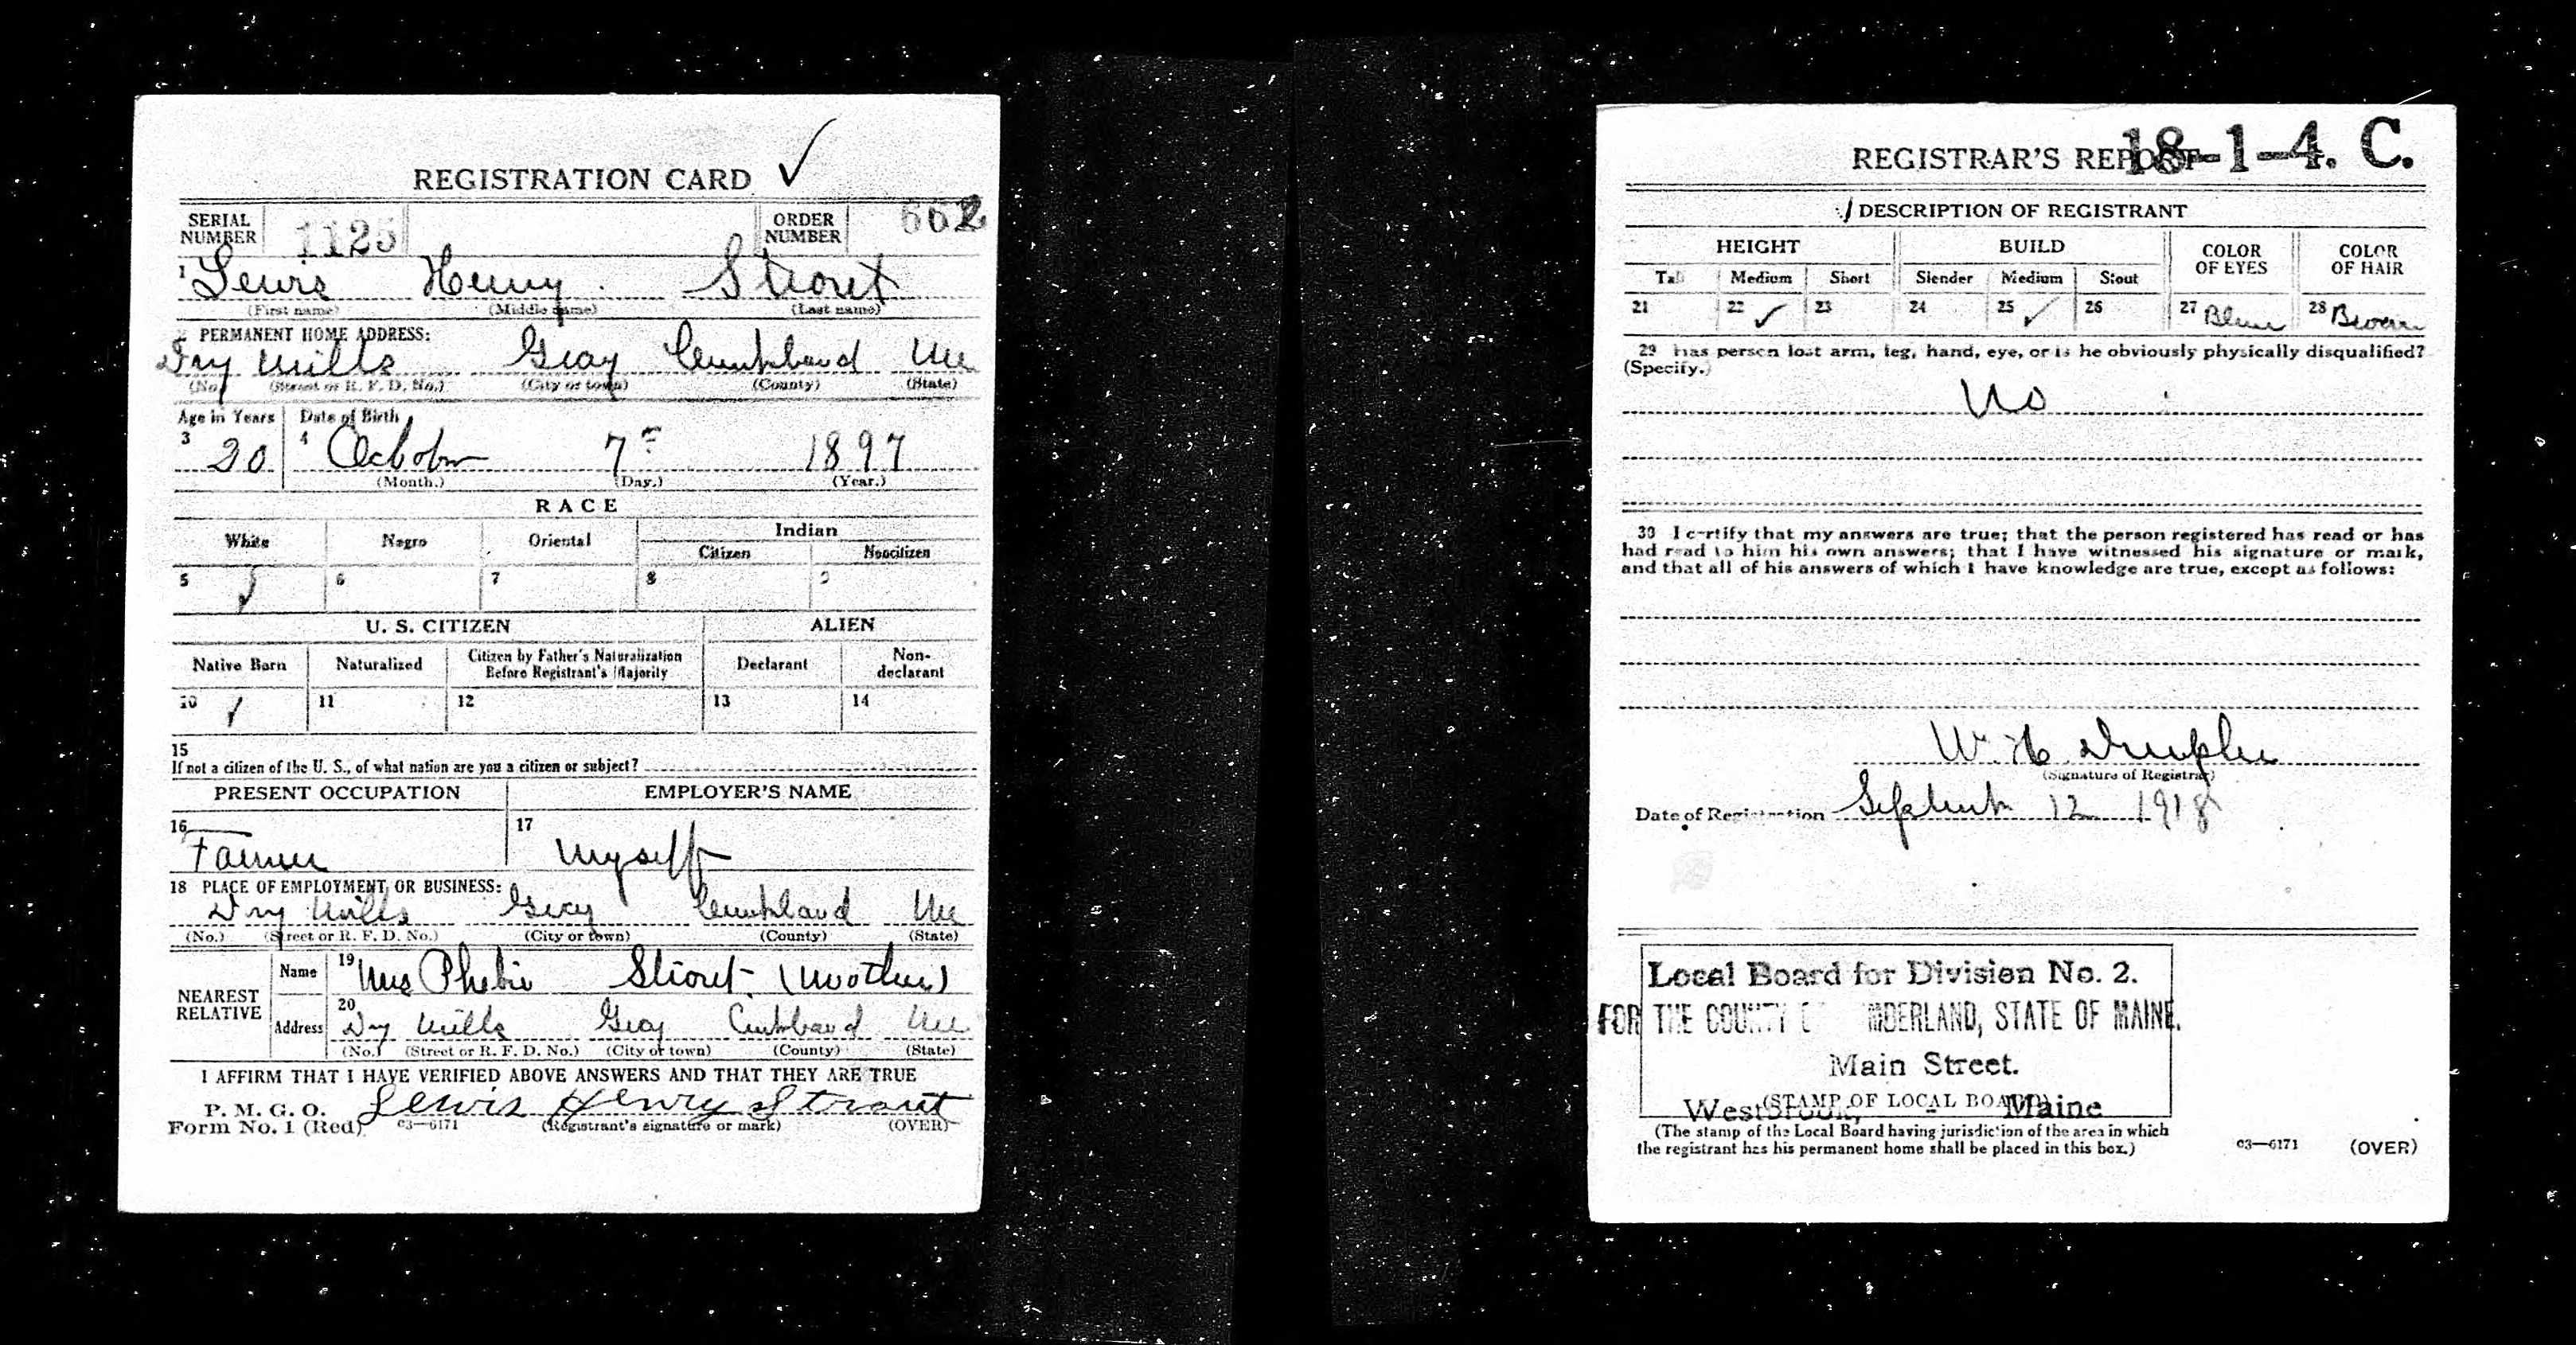 REGISTRATION CARD ✓
SERIAL NUMBER 1125 ORDER NUMBER 662
1 Lewis Henry Strout
(First name) (Middle name) (Last name)
2 PERMANENT HOME ADDRESS:
Dry Mills Gray Cumberland Me
(No.) (Street or R. F. D. No.) (City or town) (County) (State)
Age in Years Date of Birth
3 20 4 October 7 1897
(Month.) (Day.) (Year.)
RACE
White Negro Oriental Indian
Citizen Noncitizen
5 ✓ 6 7 8 9
U. S. CITIZEN ALIEN
Native Born Naturalized Citizen by Father's Naturalization Before Registrant's Majority Declarant Non-declarant
10 ✓ 11 12 13 14
15
If not a citizen of the U. S., of what nation are you a citizen or subject?
PRESENT OCCUPATION EMPLOYER'S NAME
16 Farmer 17 Myself
18 PLACE OF EMPLOYMENT OR BUSINESS:
Dry Mills Gray Cumberland Me
(No.) (Street or R. F. D. No.) (City or town) (County) (State)
NEAREST RELATIVE
Name 19 Mrs Phebie Strout (Mother)
Address 20 Dry Mills Gray Cumberland Me
(No.) (Street or R. F. D. No.) (City or town) (County) (State)
I AFFIRM THAT I HAVE VERIFIED ABOVE ANSWERS AND THAT THEY ARE TRUE
P. M. G. O. Lewis Henry Strout
Form No. 1 (Red) 03—6171 (Registrant's signature or mark) (OVER)
REGISTRAR'S REPORT 18-1-4. C.
DESCRIPTION OF REGISTRANT
HEIGHT BUILD COLOR OF EYES COLOR OF HAIR
Tall Medium Short Slender Medium Stout
21 22 ✓ 23 24 25 ✓ 26 27 Blue 28 Brown
29 Has person lost arm, leg, hand, eye, or is he obviously physically disqualified?
(Specify.)
No
30 I certify that my answers are true; that the person registered has read or has
had read to him his own answers; that I have witnessed his signature or mark,
and that all of his answers of which I have knowledge are true, except as follows:
W. H.
(Signature of Registrar)
Date of Registration September 12 1918
Local Board for Division No. 2.
FOR THE COUNTY OF CUMBERLAND, STATE OF MAINE.
Main Street.
Westbrook, Maine
(STAMP OF LOCAL BOARD)
(The stamp of the Local Board having jurisdiction of the area in which
the registrant has his permanent home shall be placed in this box.)
03—6171 (OVER)